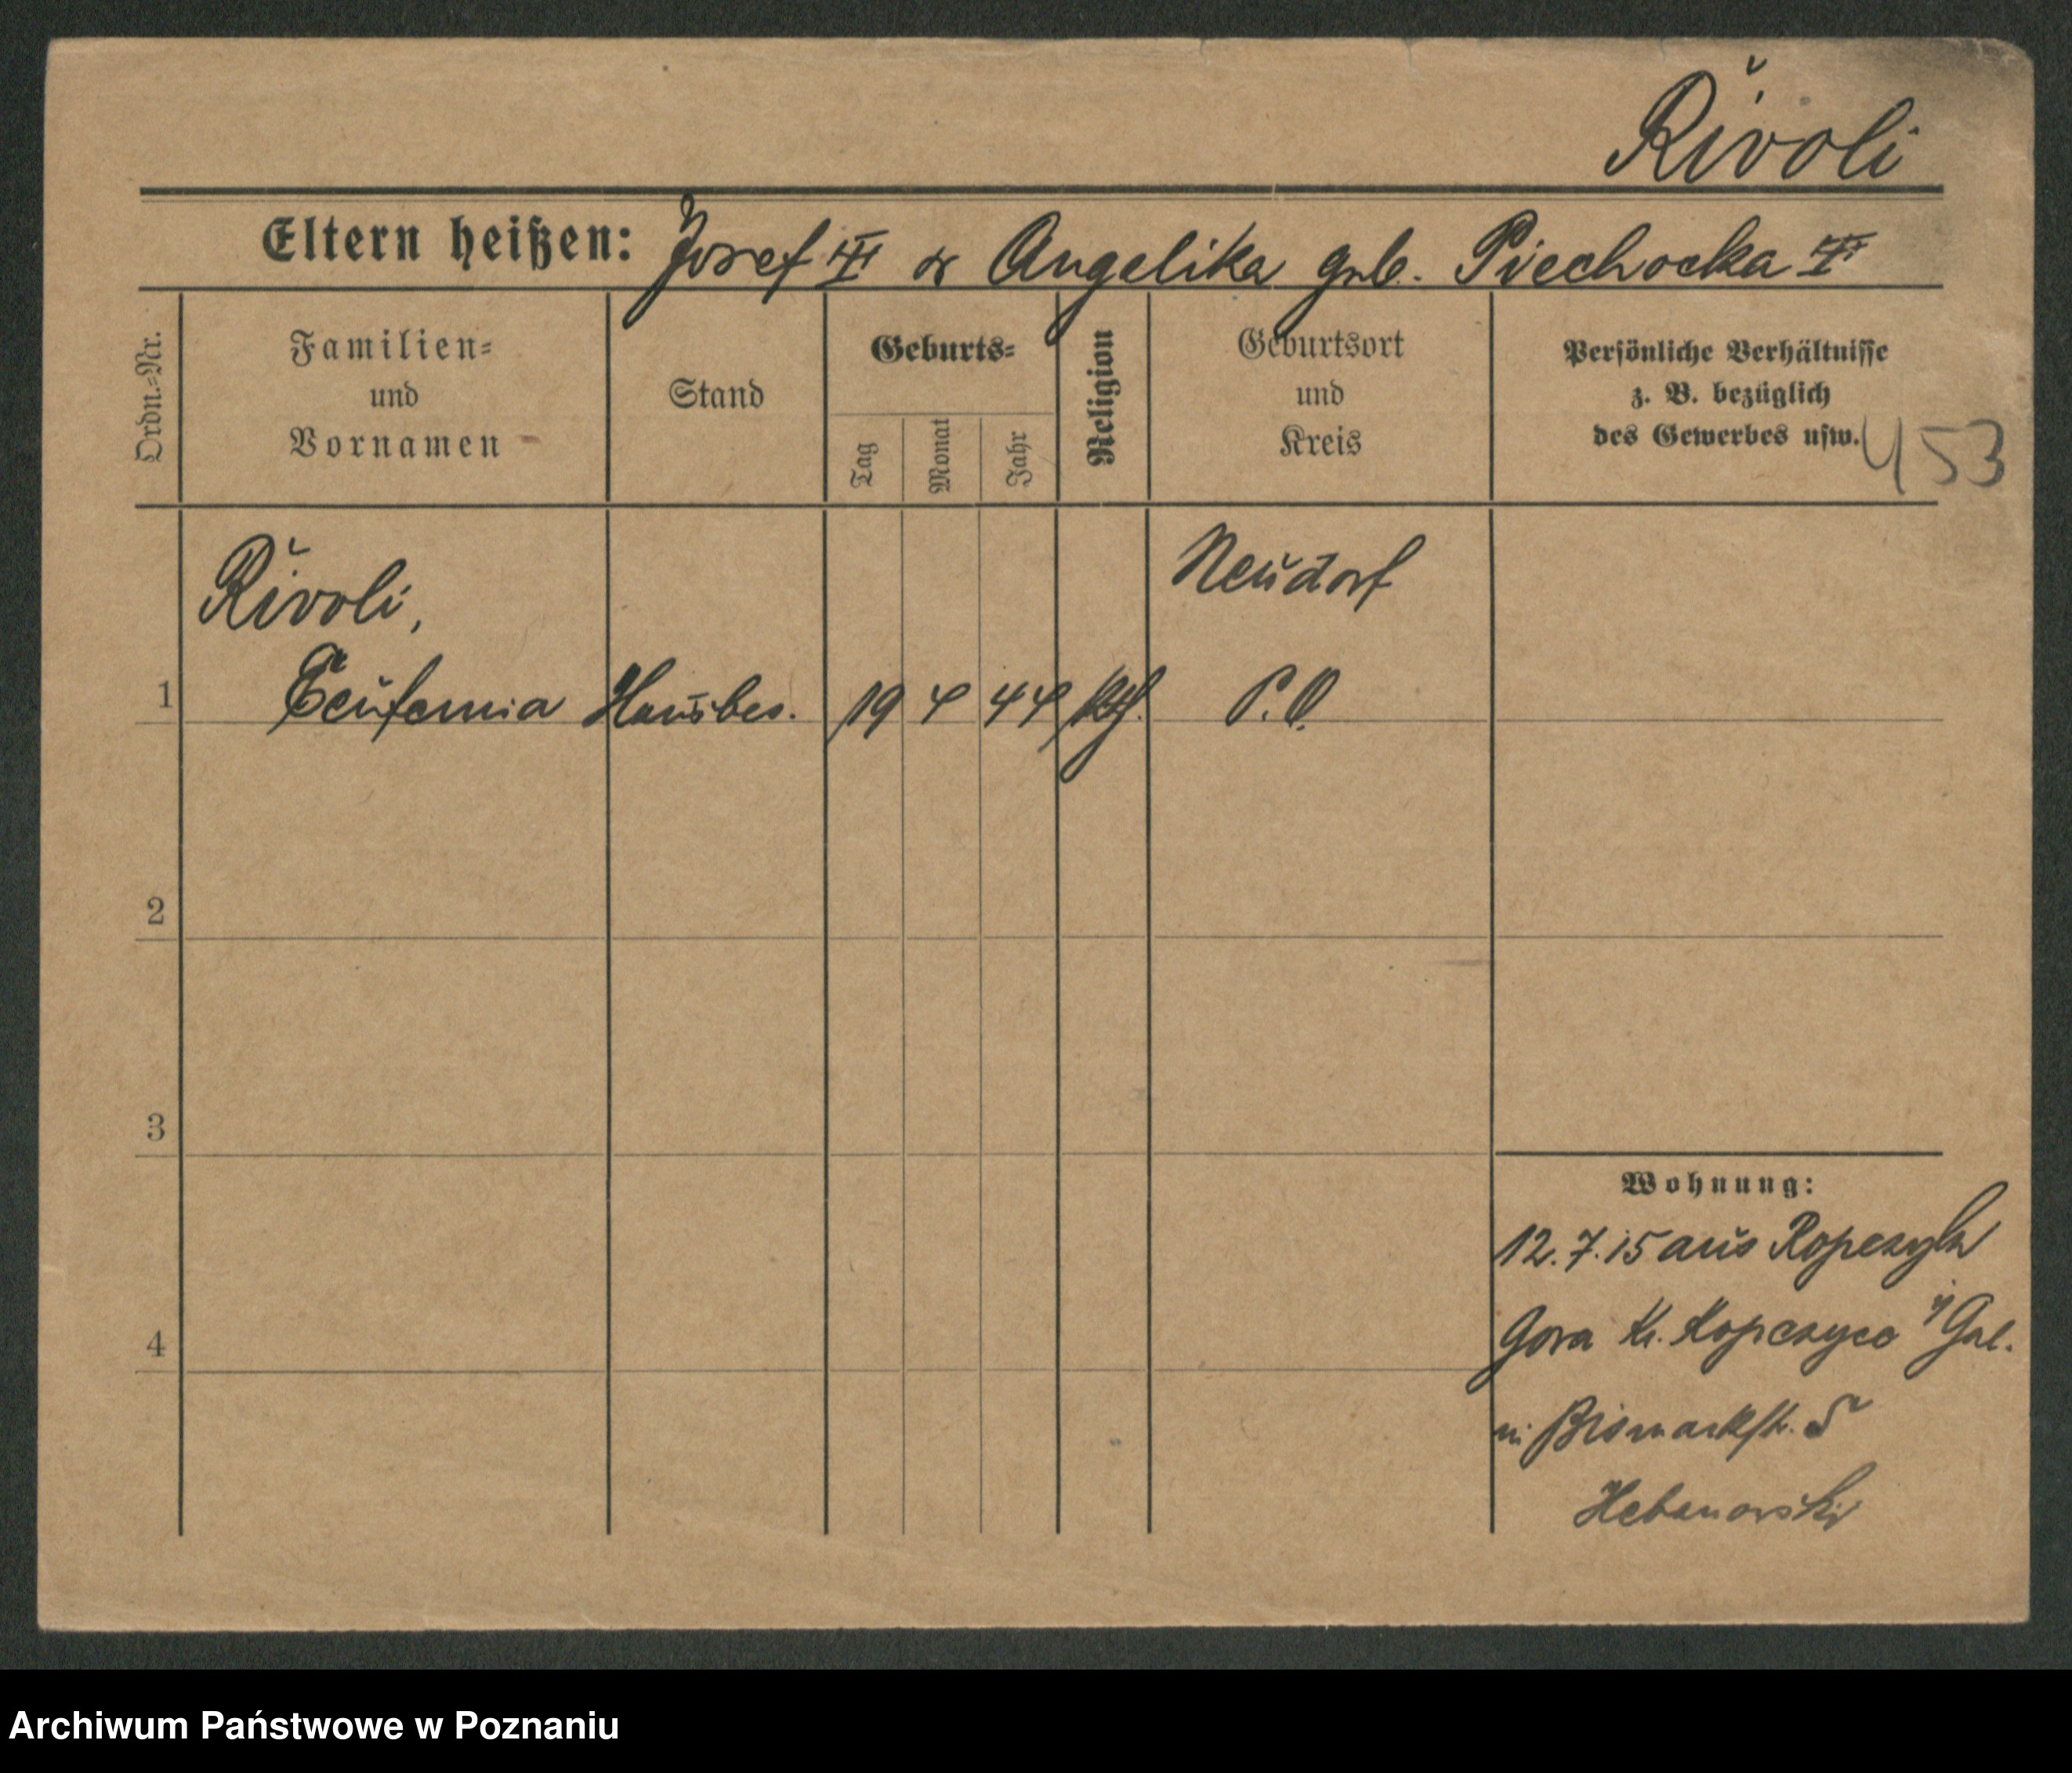 Rivoli
Eltern heißen: Josef III & Angelika geb. Piechocka III
Ordn.=Nr.
Familien=
und
Vornamen
Stand
Geburts=
Tag
Monat
Jahr
Religion
Geburtsort
und
Kreis
Persönliche Verhältnisse
z. B. bezüglich
des Gewerbes usw.
453
Rivoli,
Neudorf
1
Eeufemia
Hausbes.
19
4
44
kth.
P. O.
2
3
Wohnung:
12.7.15 aus
Gora Kr. Ropczyce i/Gal.
4
in Bismarkstr. 5
Hebanowski
Archiwum Państwowe w Poznaniu